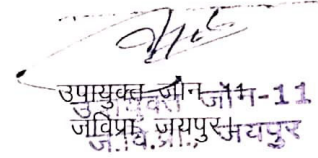 उपायुक्त जोन-11
जविप्रा, जयपुर।
उपायुक्त जोन-11
ज.वि.प्रा., जयपुर